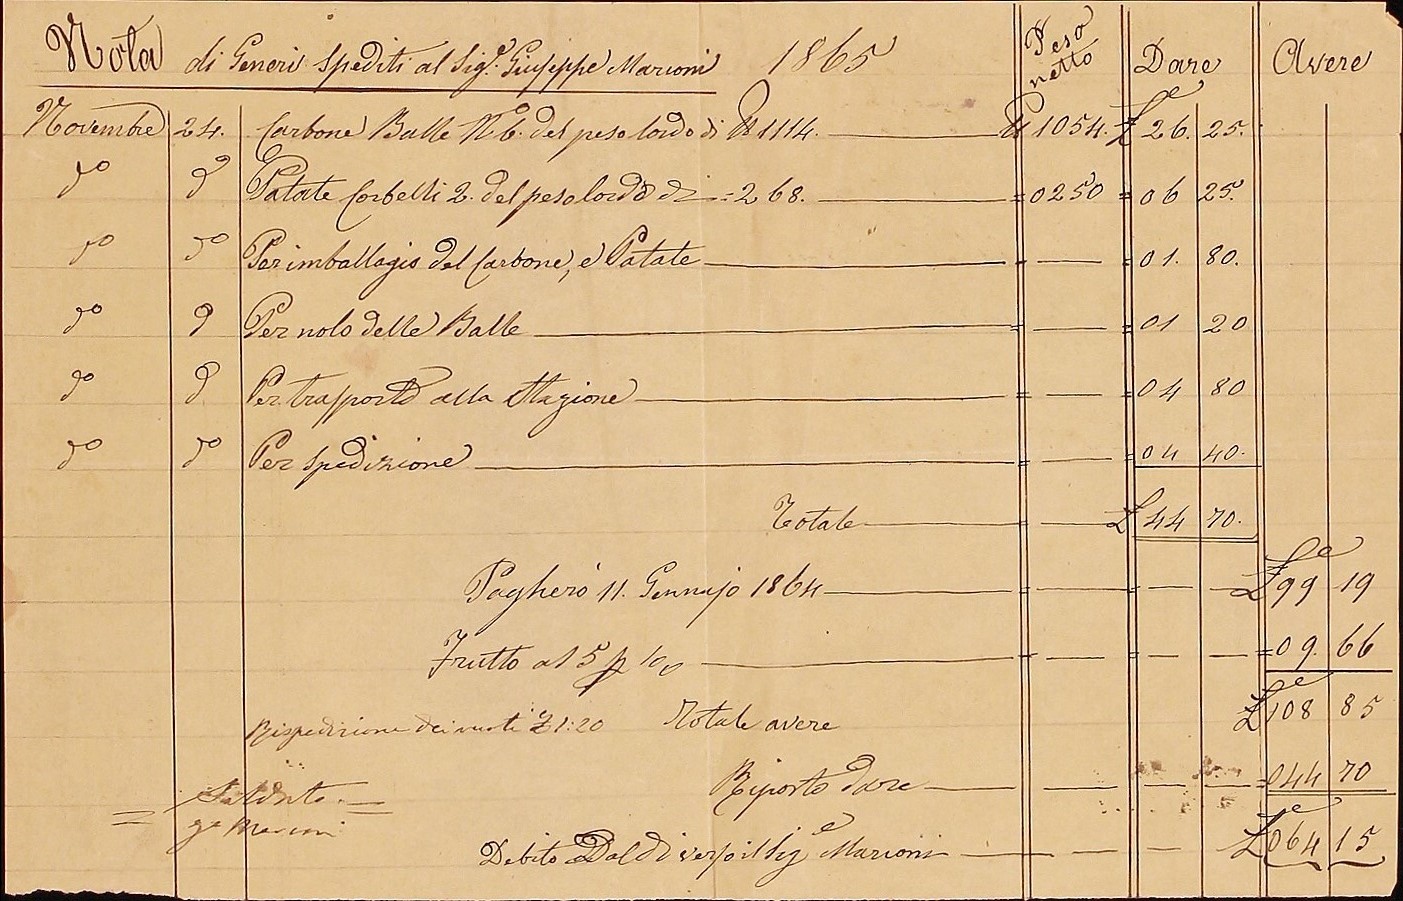 Nota di Generi spediti al Sig.e Giuseppe Marioni 1865 Peso netto Dare Avere
Novembre 24. Carbone Balle N. 6. del peso lordo di 1114. 1054. £e 26. 25.
do do Patate Corbelli 2. del peso lordo di = 268. = 0250 = 06 25.
do do Per imballagio del Carbone, e Patate = 01. 80.
do do Per nolo delle Balle = 01 20
do do Per trasporto alla Stazione = 04 80
do do Per spedizione = 04 40.
Totale £ 44 70.
Pagherò 11. Gennajo 1864 £e 99 19
Frutto al 5 p % = 09. 66
Rispedizione dei vuoti £ 1:20 Totale avere £e 108 85
Riporto dare = 044 70
= Saldato. =
Marioni
Debito Daldi verso il Sig.e Marioni £e 064 15